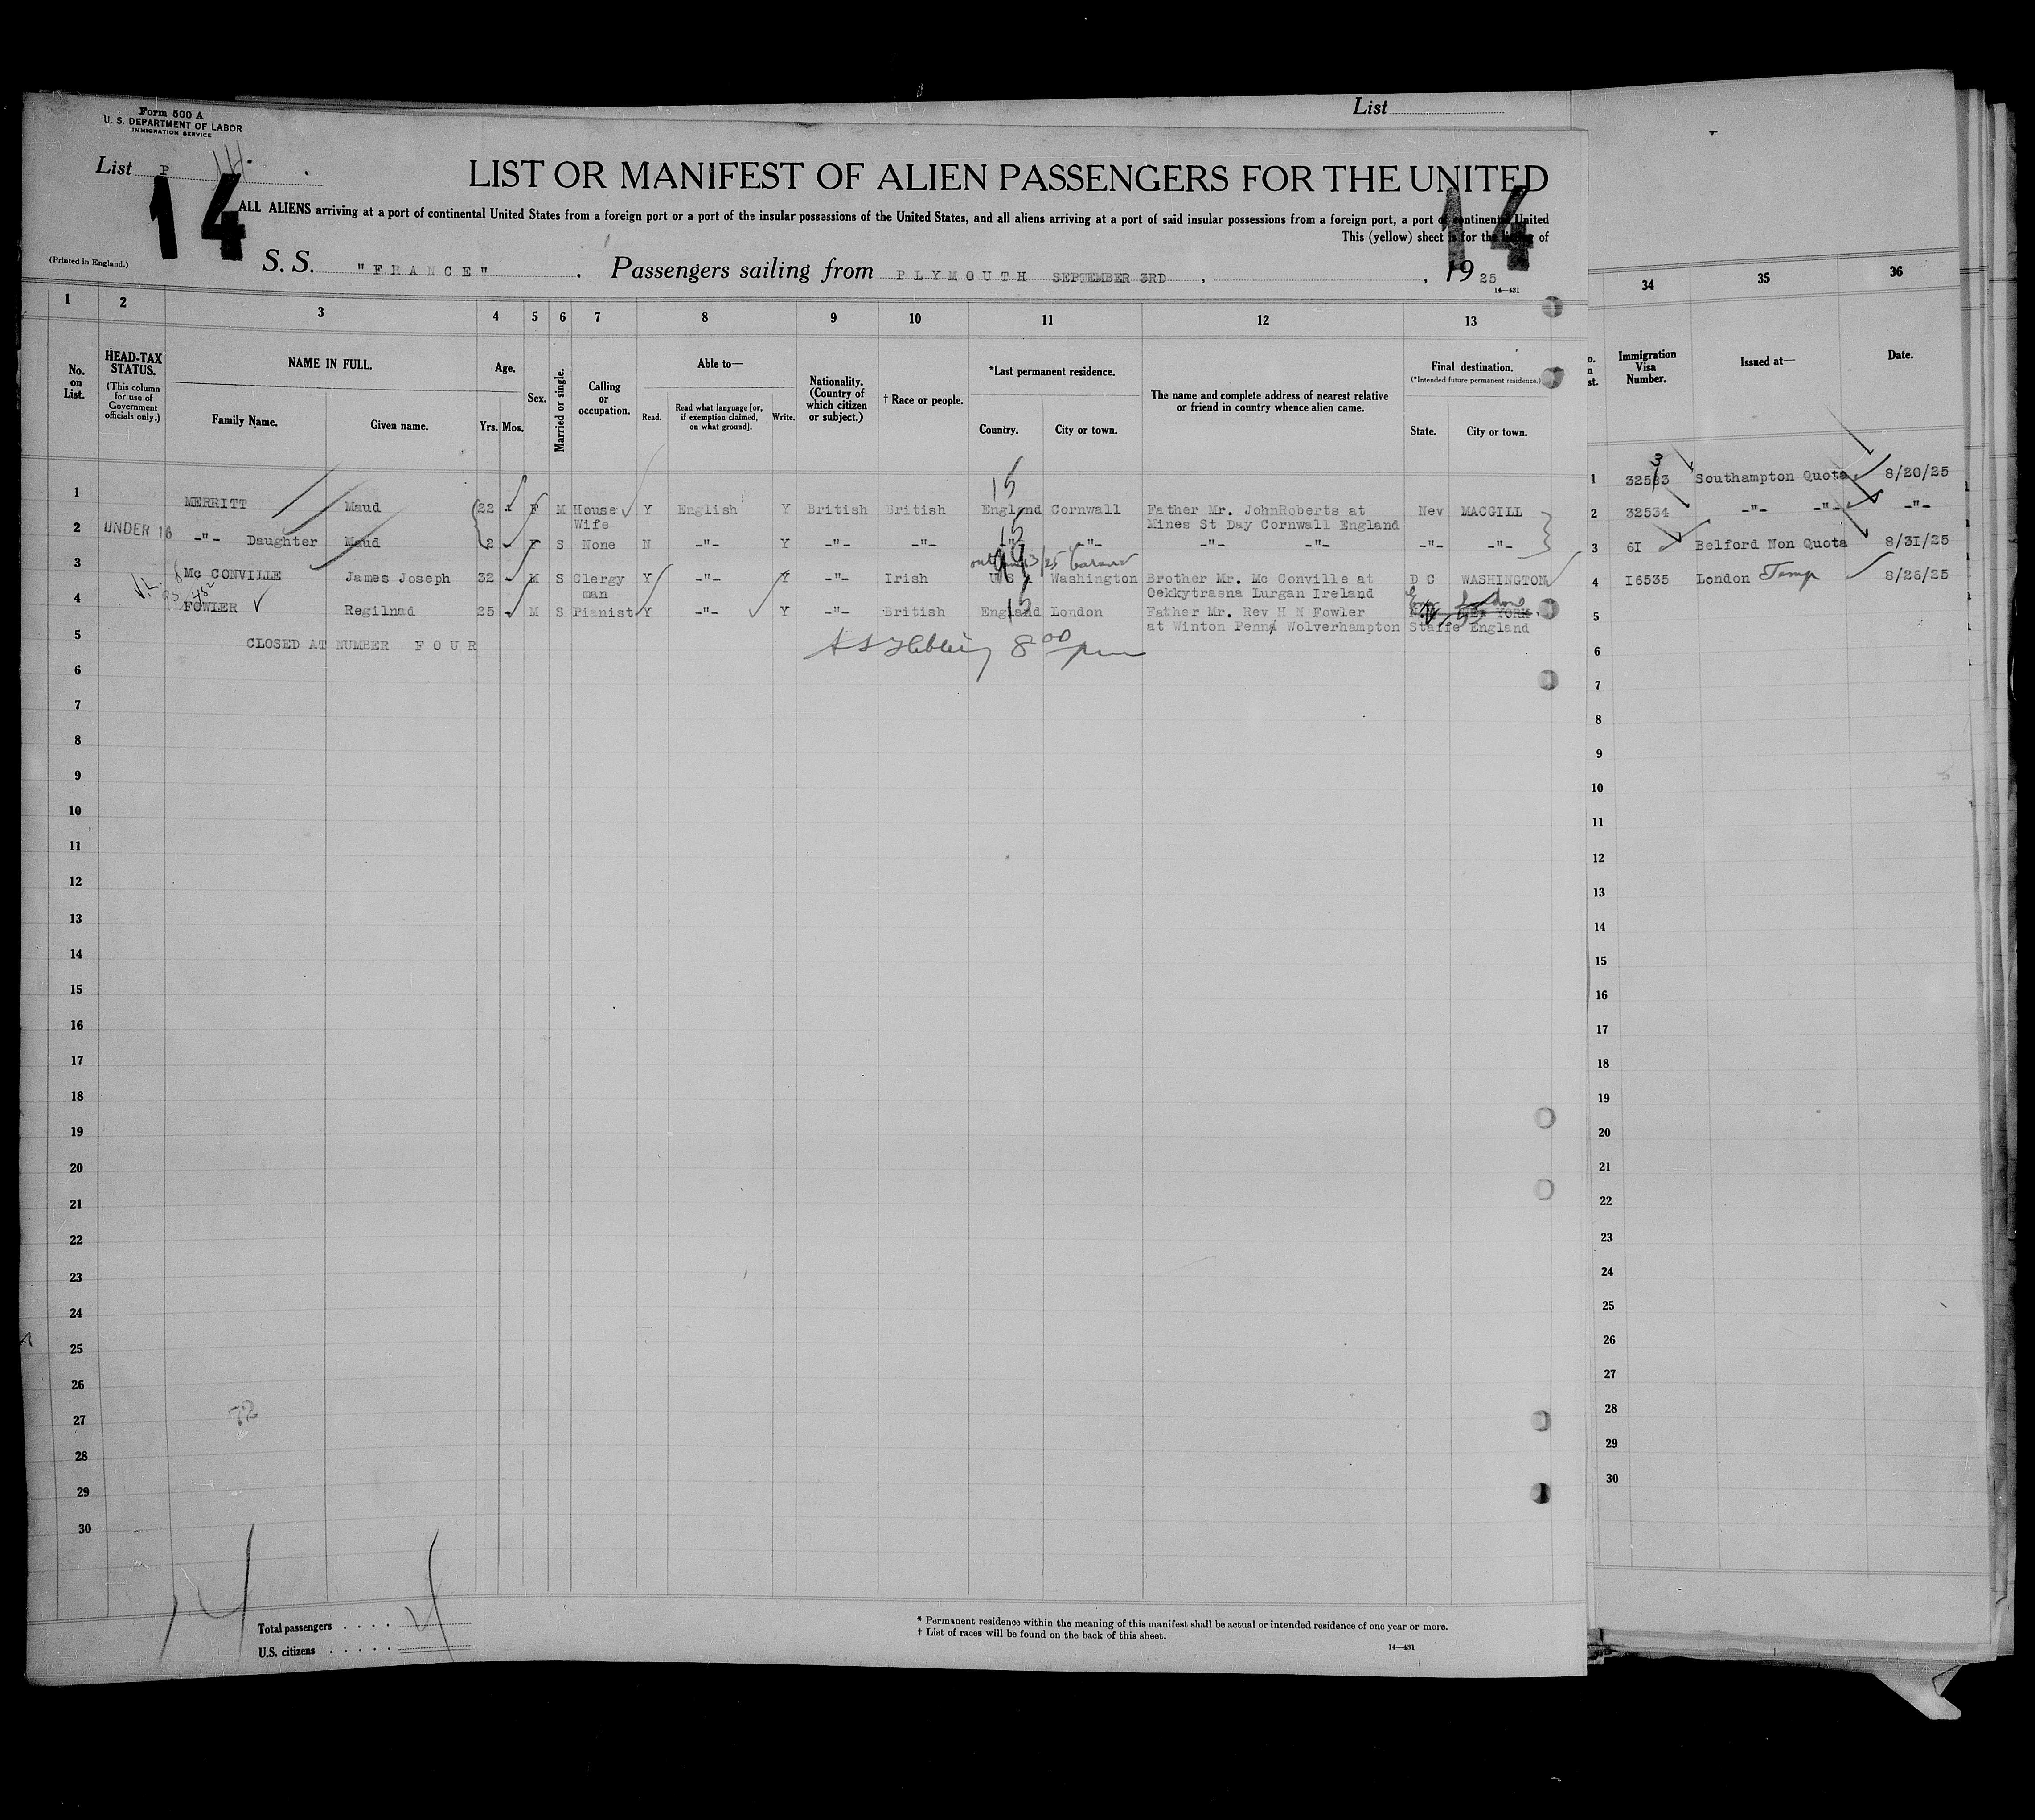 List
Form 500 A
U. S. DEPARTMENT OF LABOR
IMMIGRATION SERVICE
List P 14.
14
LIST OR MANIFEST OF ALIEN PASSENGERS FOR THE UNITED
14
ALL ALIENS arriving at a port of continental United States from a foreign port or a port of the insular possessions of the United States, and all aliens arriving at a port of said insular possessions from a foreign port, a port of continental United
This (yellow) sheet is for the listing of
(Printed in England.)
S. S. "FRANCE" . Passengers sailing from PLYMOUTH SEPTEMBER 3RD , , 19 25
14—431
1 2 3 4 5 6 7 8 9 10 11 12 13 34 35 36
No. on List.
HEAD-TAX STATUS.
(This column for use of Government officials only.)
NAME IN FULL.
Family Name. Given name.
Age.
Yrs. Mos.
Sex.
Married or single.
Calling or occupation.
Able to—
Read. Read what language [or, if exemption claimed, on what ground]. Write.
Nationality. (Country of which citizen or subject.)
† Race or people.
*Last permanent residence.
Country. City or town.
The name and complete address of nearest relative or friend in country whence alien came.
Final destination.
(*Intended future permanent residence.)
State. City or town.
Immigration Visa Number.
Issued at—
Date.
15
1 MERRITT Maud 22 - F M House Wife Y English Y British British England Cornwall Father Mr. JohnRoberts at Nev MACGILL
Mines St Day Cornwall England
15
2 UNDER 16 -"- Daughter Maud 2 - F S None N -"- Y -"- -"- -"- -"- -"- -"- -"- -"-
3 Mc CONVILLE James Joseph 32 - M S Clergy man Y -"- Y -"- Irish U S A Washington Brother Mr. Mc Conville at D C WASHINGTON
Oekkytrasna Lurgan Ireland
15
4 FOWLER Regilnad 25 - M S Pianist Y -"- Y -"- British England London Father Mr. Rev H N Fowler NEW YORK
at Winton Penn Wolverhampton Staffe England
London
5 CLOSED AT NUMBER FOUR
8 00 pm
6
7
8
9
10
11
12
13
14
15
16
17
18
19
20
21
22
23
24
25
26
27
72
28
29
30
1 32533 Southampton Quota 8/20/25
3
2 32534 -"- -"- -"-
3 6I Belford Non Quota 8/31/25
4 I6535 London Temp 8/26/25
5
6
7
8
9
10
11
12
13
14
15
16
17
18
19
20
21
22
23
24
25
26
27
28
29
30
Total passengers . . . . 4
U.S. citizens . . . . .
* Permanent residence within the meaning of this manifest shall be actual or intended residence of one year or more.
† List of races will be found on the back of this sheet.
14—431